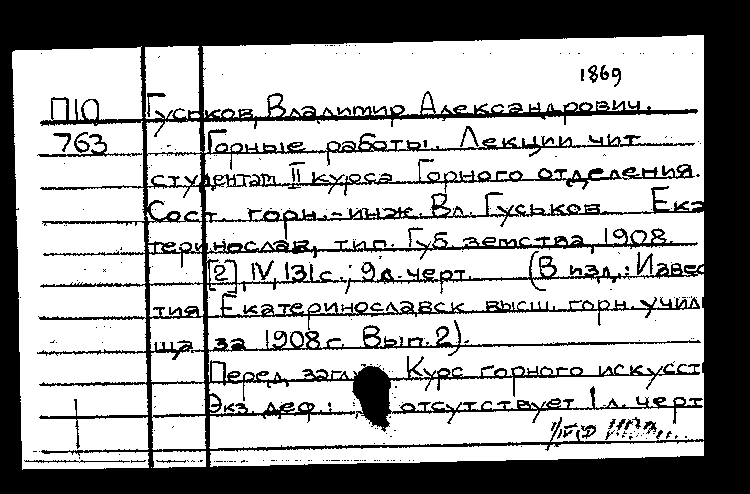 1869
П10 Гуськов, Владимир Александрович.
763 Горные работы. Лекции чит
студентам II курса Горного отделения.
Сост. горн.-инж. Вл. Гуськов. Ека
теринослав, тип. Губ. земства, 1908.
[2], IV, 131 с.; 9 л. черт. (В изд.: Извес
тия Екатеринославск высш. горн. учил
ща за 1908 г. Вып. 2).
Перед загл Курс горного искусст
Экз. деф.: отсутствует 1 л. черт